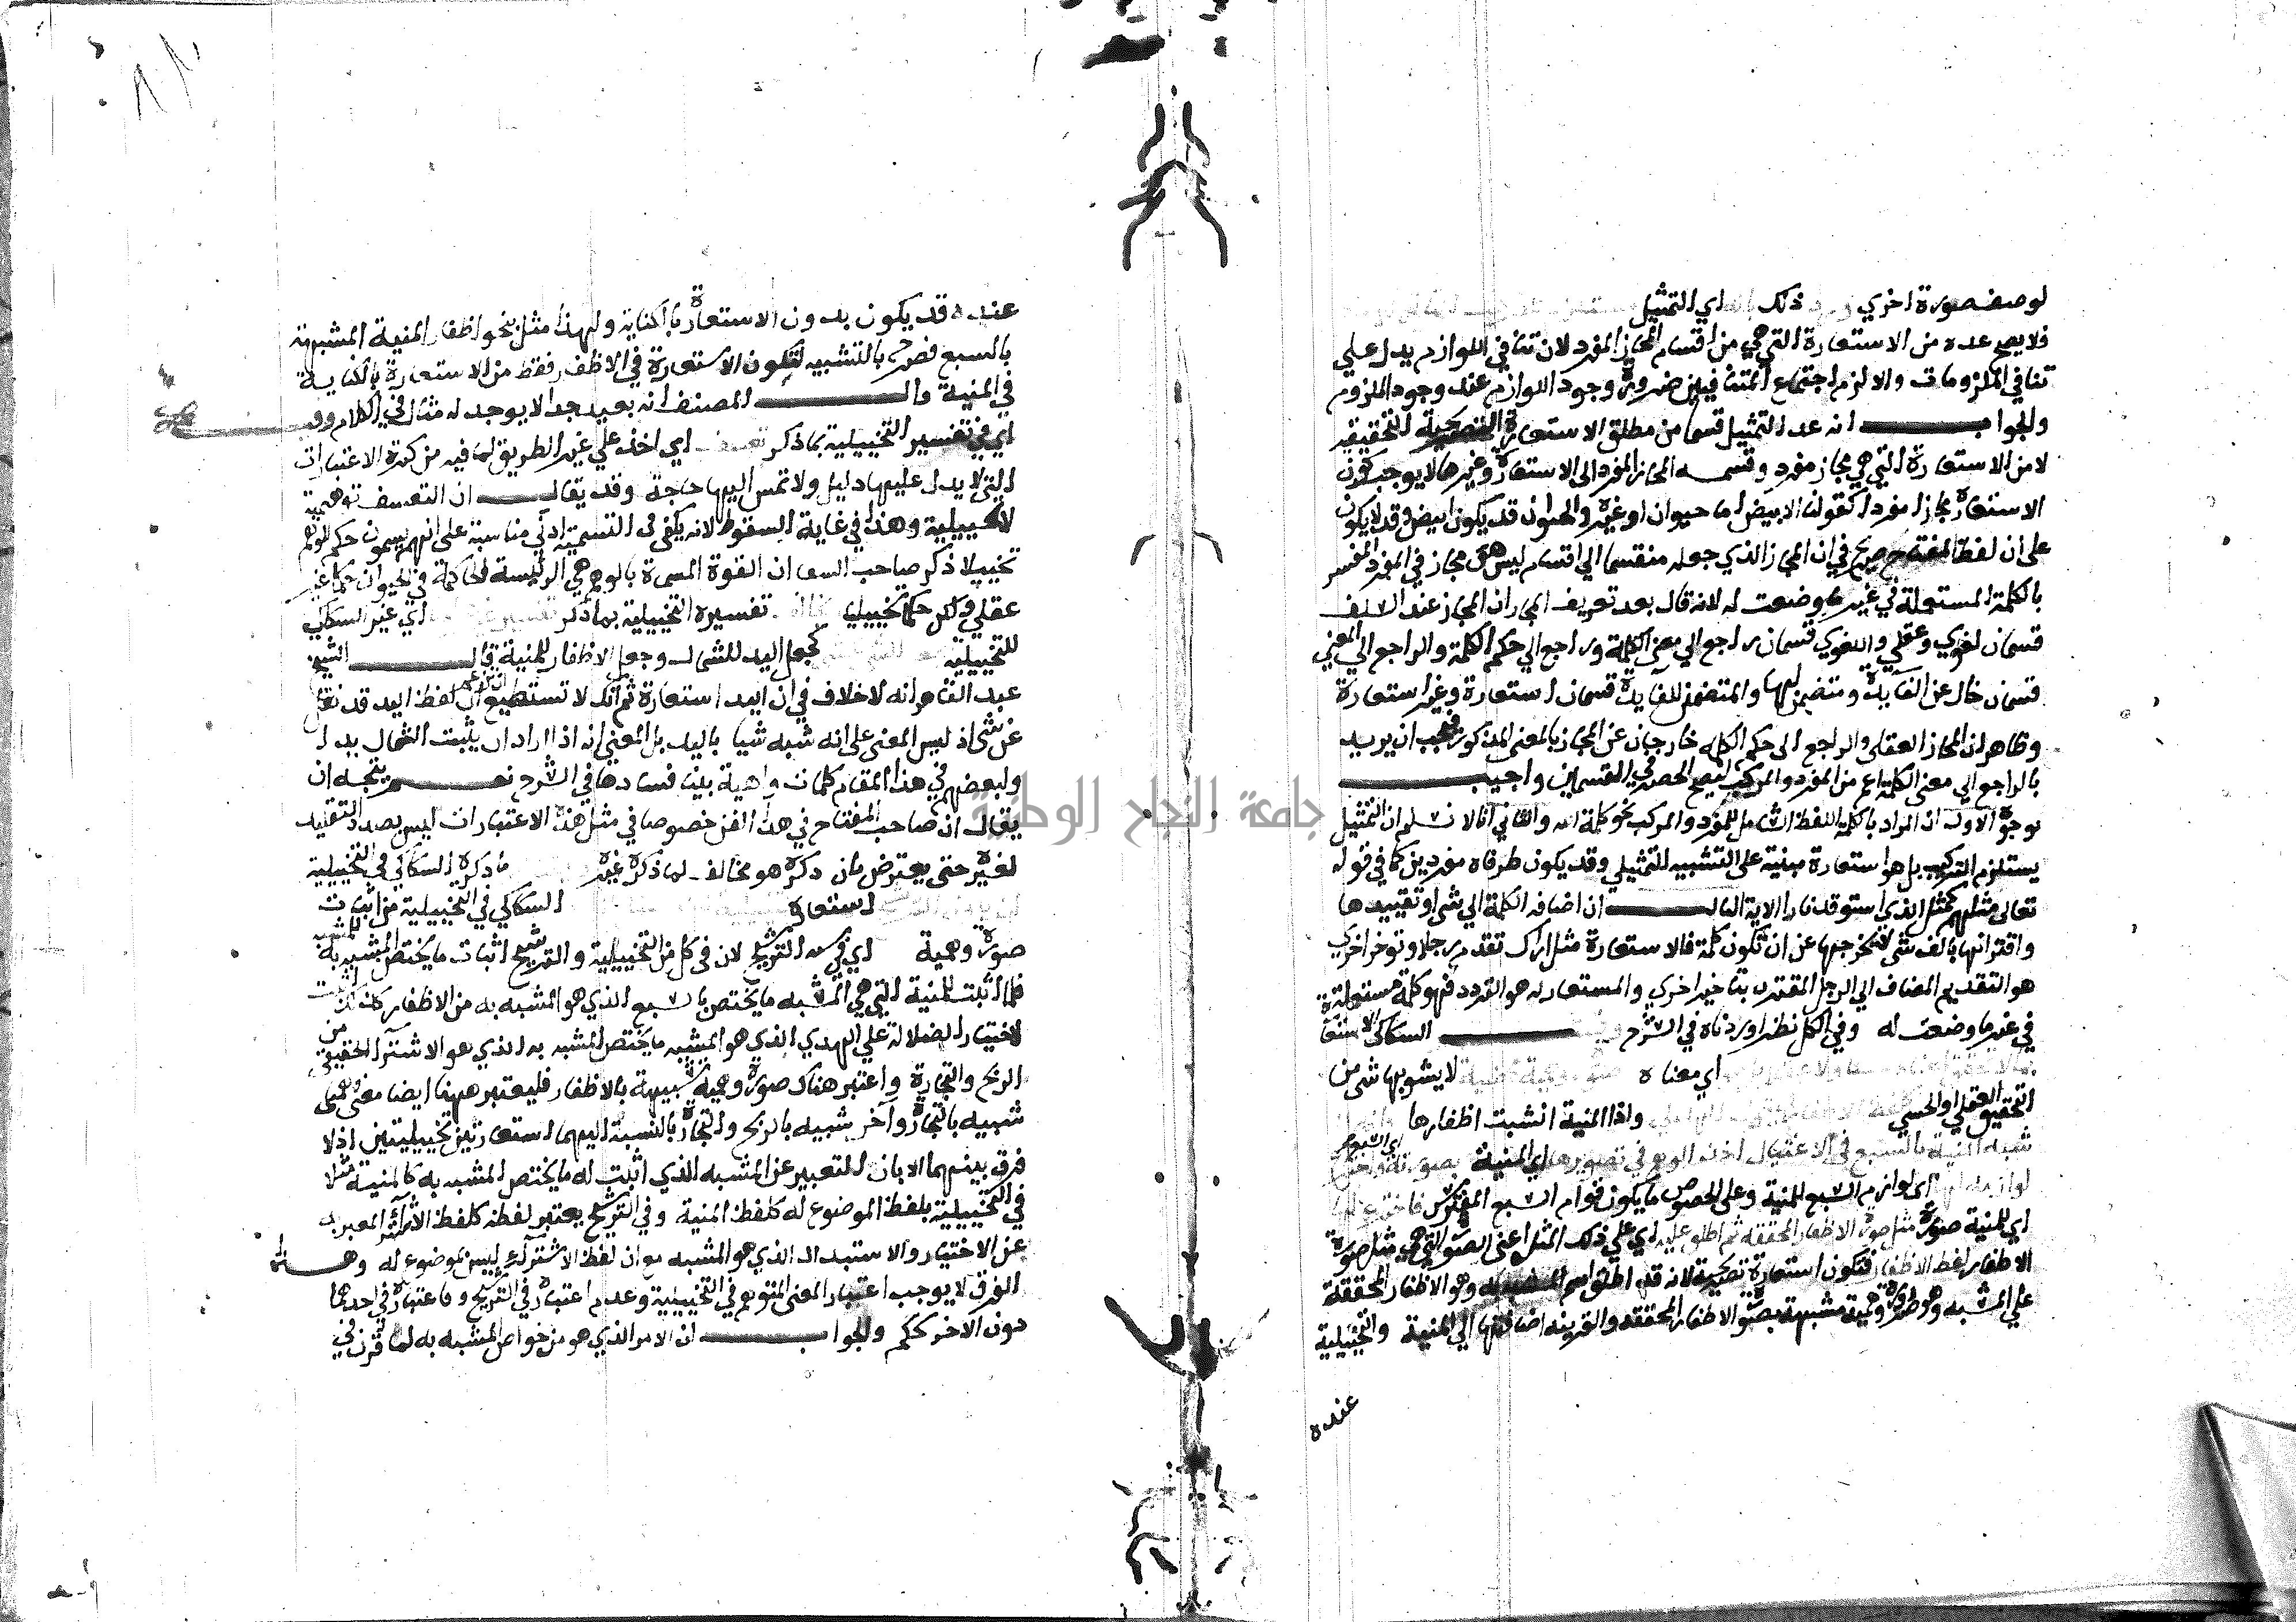 لوصف صورة اخري ذلك اي التمثيل
فلا يصح عده من الاستعارة التي هي من اقسام المجاز المفرد لان تنافي اللوازم يدل علي
تنافي الملزومات والا لزم اجتماع المتنافيين ضرورة وجود اللوازم عند وجود الملزوم
والجواب انه عد التمثيل قسما من مطلق الاستعارة التصريحية التحقيقية
لا من الاستعارة التي هي مجاز مفرد وقسمه المجاز المفرد الى الاستعارة وغيرها لا يوجب كون
الاستعارة مجازا مفردا كقولنا الابيض اما حيوان او غيره والحيوان قد يكون ابيض وقد لا يكون
على ان لفظ المفتاح صريح في ان المجاز الذي جعله منقسما الي اقسام ليس هو مجاز في المفرد المفسر
بالكلمة المستعملة في غير ما وضعت له لانه قال بعد تعريف المجاز ان المجاز عند السلف
قسمان لغوي وعقلي واللغوي قسمان راجع الي معنى الكلمة وراجع الي حكم الكلمة والراجع الي المعني
قسمان خال عن الفايدة ومتضمن لها والمتضمن للفايدة قسمان استعارة وغير استعارة
وظاهر ان المجاز العقلي والراجع الى حكم الكلمه خارجان عن المجاز بالمعنى المذكور فيجب ان يريد
بالراجع الي معنى الكلمة اعم من المفرد والمركب ليصح الحصر في القسمين واجيب
بوجوه الاول ان المراد بالكلمة اللفظ الشامل للمفرد والمركب نحو كلمة الله والثاني انا لا نسلم ان التمثيل
يستلزم التركيب بل هو استعارة مبنية على التشبيه التمثيلي وقد يكون طرفاه مفردين كما في قوله
تعالى مثلهم كمثل الذي استوقد نارا الاية الثالث ان اضافة الكلمة الي شي او تقييدها
واقترانها بالف شي لا يخرجها عن ان تكون كلمة فالاستعارة مثل اراك تقدم رجلا وتوخر اخري
هو التقديم المضاف الي الرجل المقترن بتاخير اخري والمستعار له هو التردد فهو كلمة مستعملة
في غير ما وضعت له وفي الكل نظر اوردناه في الشرح السكاكي الاستعارة
اي معناه لا يشوبها شي من
التحقيق العقلي او الحسي واذا المنية انشبت اظفارها
شبه المنية بالسبع في الاغتيال اخذ الوهم في تصويرها اي المنية بصورته
لوازمه اي لوازم السبع للمنية وعلى الخصوص ما يكون قوام السبع المفترس فاخترع لها
اي للمنية صورة مثل صورة الاظفار المحققة ثم اطلق عليه اي علي ذلك المثل اعني الصورة التي هي مثل صورة
الاظفار لفظ الاظفار فتكون استعارة تصريحية لانه قد اطلق اسم المشبه به وهو الاظفار المحققة
علي المشبه وهو صورة وهمية مشبهة بصورة الاظفار المحققة والقرينه اضافتها الي المنية والتخييلية
عنده
عنده قد يكون بدون الاستعارة بالكناية ولهذا مثل بنحو اظفار المنية المشبهة
بالسبع فصرح بالتشبيه لتكون الاستعارة في الاظفار فقط من الاستعارة بالكناية
في المنية وال المصنف انه بعيد جدا لا يوجد له مثال في الكلام
اي في تفسير التخييلية بما ذكر تعسف اي اخذ علي غير الطريق لما فيه من كثرة الاعتبارات
التي لا يدل عليها دليل ولا تمس اليها حاجة وقد يقال ان التعسف توهمية
لا تخييلية وهذا في غاية السقوط لانه يكفي في التسمية ادني مناسبة على انهم يسمون حكم الوهم
تخييلا ذكر صاحب الشفا ان القوة المسماة بالوهم هي الرئيسة الحاكمة في الحيوان حكما غير
عقلي ولكن حكما تخييليا تفسيره التخييلية بما ذكر اي غير السكاكي
للتخييلية كجعل اليد للشمال وجعل الاظفار للمنية قال الشيخ
عبد القاهر انه لا خلاف في ان اليد استعارة ثم انك لا تستطيع ان تزعم ان لفظ اليد قد نقل
عن شي اذ ليس المعنى على انه شبه شيا باليد بل المعني انه اذا اراد ان يثبت الشمال يدا
ولبعضهم في هذا المقام كلمات واهية بينا فسادها في الشرح نعم يتجه ان
يقال ان صاحب المفتاح في هذا الفن خصوصا في مثل هذه الاعتبارات ليس بصدد التقليد
لغيره حتى يعترض بان ذكره هو مخالف لما ذكره غيره ما ذكره السكاكي في التخييلية
استعارة السكاكي في التخييلية من اثبات
صورة وهمية اي في الترشيح لان في كل من التخييلية والترشيح اثبات ما يختص المشبه به للمشبه
فكما اثبت للمنية التي هي المشبه ما يختص بالسبع الذي هو المشبه به من الاظفار كذلك اثبت
لاختيار الضلالة علي الهدي الذي هو المشبه ما يختص المشبه به الذي هو الاشترا الحقيقي من
الربح والتجارة واعتبر هناك صورة وهمية شبيهة بالاظفار فليعتبر ههنا ايضا معنى وهمي
شبيه بالتجارة وآخر شبيه بالربح والتجارة بالنسبة اليهما استعارتين تخييليتين اذ لا
فرق بينهما الا بان التعبير عن المشبه الذي اثبت له ما يختص المشبه به كالمنية مثلا
في التخييلية بلفظ الموضوع له كلفظ المنية وفي الترشيح يعتبر لفظه كلفظ الاشتراء المعبر به
عن الاختيار والاستبدال الذي هو المشبه مع ان لفظ الاشتراء ليس بموضوع له وهذا
الفرق لا يوجب اعتبار المعني المتوهم في التخييلية وعدم اعتباره في الترشيح فاعتباره في احدهما
دون الاخر تحكم والجواب ان الامر الذي هو من خواص المشبه به لما قرن في
جامعة النجاح الوطنية